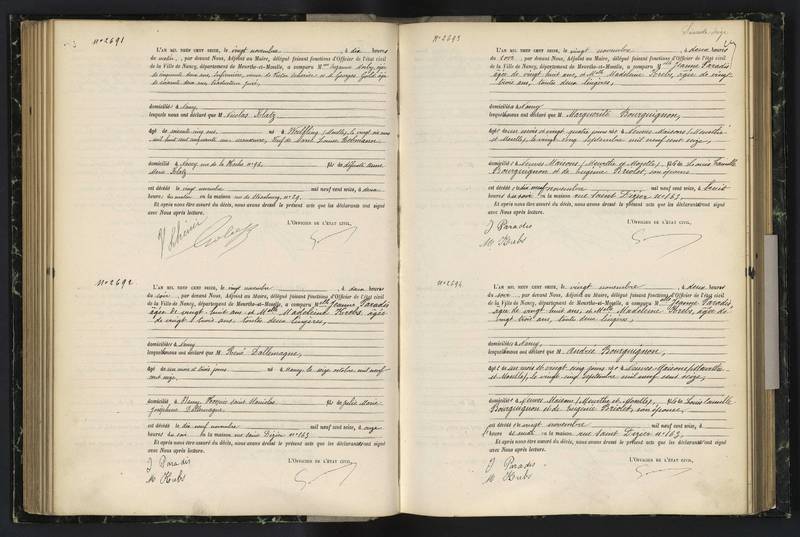 N° 2691
L'AN MIL NEUF CENT SEIZE, le vingt novembre, à dix heures
du matin, par devant Nous, Adjoint au Maire, délégué faisant fonctions d'Officier de l'état civil
de la Ville de Nancy, département de Meurthe-et-Moselle, a comparu M
de cinquante deux ans,
domiciliés à Nancy,
lesquels nous ont déclaré que M. Nicolas Klatz
âgé de soixante cinq ans, né à (Moselle), le vingt
mil huit cent cinquante un,
domicilié à Nancy, rue de la N° 92, fils de défunte Anne
Marie Klatz
est décédé le vingt novembre mil neuf cent seize, à deux
heures du matin en la maison rue de Strasbourg, N° 29,
Et après nous être assuré du décès, nous avons dressé le présent acte que les déclarants ont signé
avec Nous après lecture.
L'OFFICIER DE L'ÉTAT CIVIL,
N° 2692
L'AN MIL NEUF CENT SEIZE, le vingt novembre, à deux heures
du soir, par devant Nous, Adjoint au Maire, délégué faisant fonctions d'Officier de l'état civil
de la Ville de Nancy, département de Meurthe-et-Moselle, a comparu Mlle Jeanne Paradis,
âgée de vingt-huit ans, et Melle Madeleine Krebs, âgée
de vingt trois ans, toutes deux lingères,
domiciliées à Nancy
lesquelles nous ont déclaré que M. René Dallemagne,
âgé de un mois et trois jours né à Nancy, le seize octobre mil neuf
cent seize,
domicilié à Nancy, Hospice Saint Stanislas fils de Julie Marie
Joséphine Dallemagne
est décédé le dix neuf novembre mil neuf cent seize, à onze
heures du soir en la maison rue Saint Dizier N° 163
Et après nous être assuré du décès, nous avons dressé le présent acte que les déclarants ont signé
avec Nous après lecture.
L'OFFICIER DE L'ÉTAT CIVIL,
J Paradis
M Krebs
N° 2693
L'AN MIL NEUF CENT SEIZE, le vingt novembre, à deux heures
du soir, par devant Nous, Adjoint au Maire, délégué faisant fonctions d'Officier de l'état civil
de la Ville de Nancy, département de Meurthe-et-Moselle, a comparu Mlle Jeanne Paradis,
âgée de vingt huit ans, et Melle Madeleine Krebs, âgée de vingt
trois ans, toutes deux lingères,
domiciliées à Nancy
lesquelles nous ont déclaré que M. Marguerite Bourguignon,
âgée de un mois et vingt quatre jours née à Neuves Maisons (Meurthe
et Moselle), le vingt cinq septembre mil neuf cent seize,
domiciliée à Neuves Maisons (Meurthe et Moselle), fille de Louis Camille
Bourguignon et de Eugénie Briolot, son épouse
est décédée le dix neuf novembre mil neuf cent seize, à huit
heures du soir en la maison rue Saint Dizier N° 163,
Et après nous être assuré du décès, nous avons dressé le présent acte que les déclarants ont signé
avec Nous après lecture.
L'OFFICIER DE L'ÉTAT CIVIL,
J Paradis
M Krebs
N° 2694
L'AN MIL NEUF CENT SEIZE, le vingt novembre, à deux heures
du soir, par devant Nous, Adjoint au Maire, délégué faisant fonctions d'Officier de l'état civil
de la Ville de Nancy, département de Meurthe-et-Moselle, a comparu Mlle Jeanne Paradis,
âgée de vingt huit ans, et Melle Madeleine Krebs, âgée de
vingt trois ans, toutes deux lingères,
domiciliées à Nancy,
lesquelles nous ont déclaré que M. Andrée Bourguignon,
âgée de un mois et vingt cinq jours née à Neuves Maisons (Meurthe
et Moselle), le vingt cinq septembre mil neuf cent seize,
domiciliée à Neuves Maisons (Meurthe et Moselle), fille de Louis Camille
Bourguignon et de Eugénie Briolot, son épouse,
est décédée le vingt novembre mil neuf cent seize, à
heures du matin en la maison rue Saint Dizier N° 163,
Et après nous être assuré du décès, nous avons dressé le présent acte que les déclarants ont signé
avec Nous après lecture.
L'OFFICIER DE L'ÉTAT CIVIL,
J Paradis
M Krebs